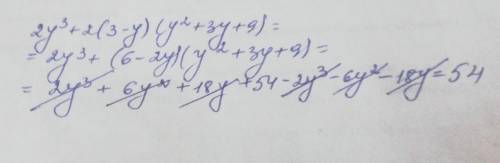 2y³+2(3-y)(y²+3y+9)=
=2y³+(6-2y)(y²+3y+9)=
=2y³+6y²+18y+54-2y³-6y²-18y=54